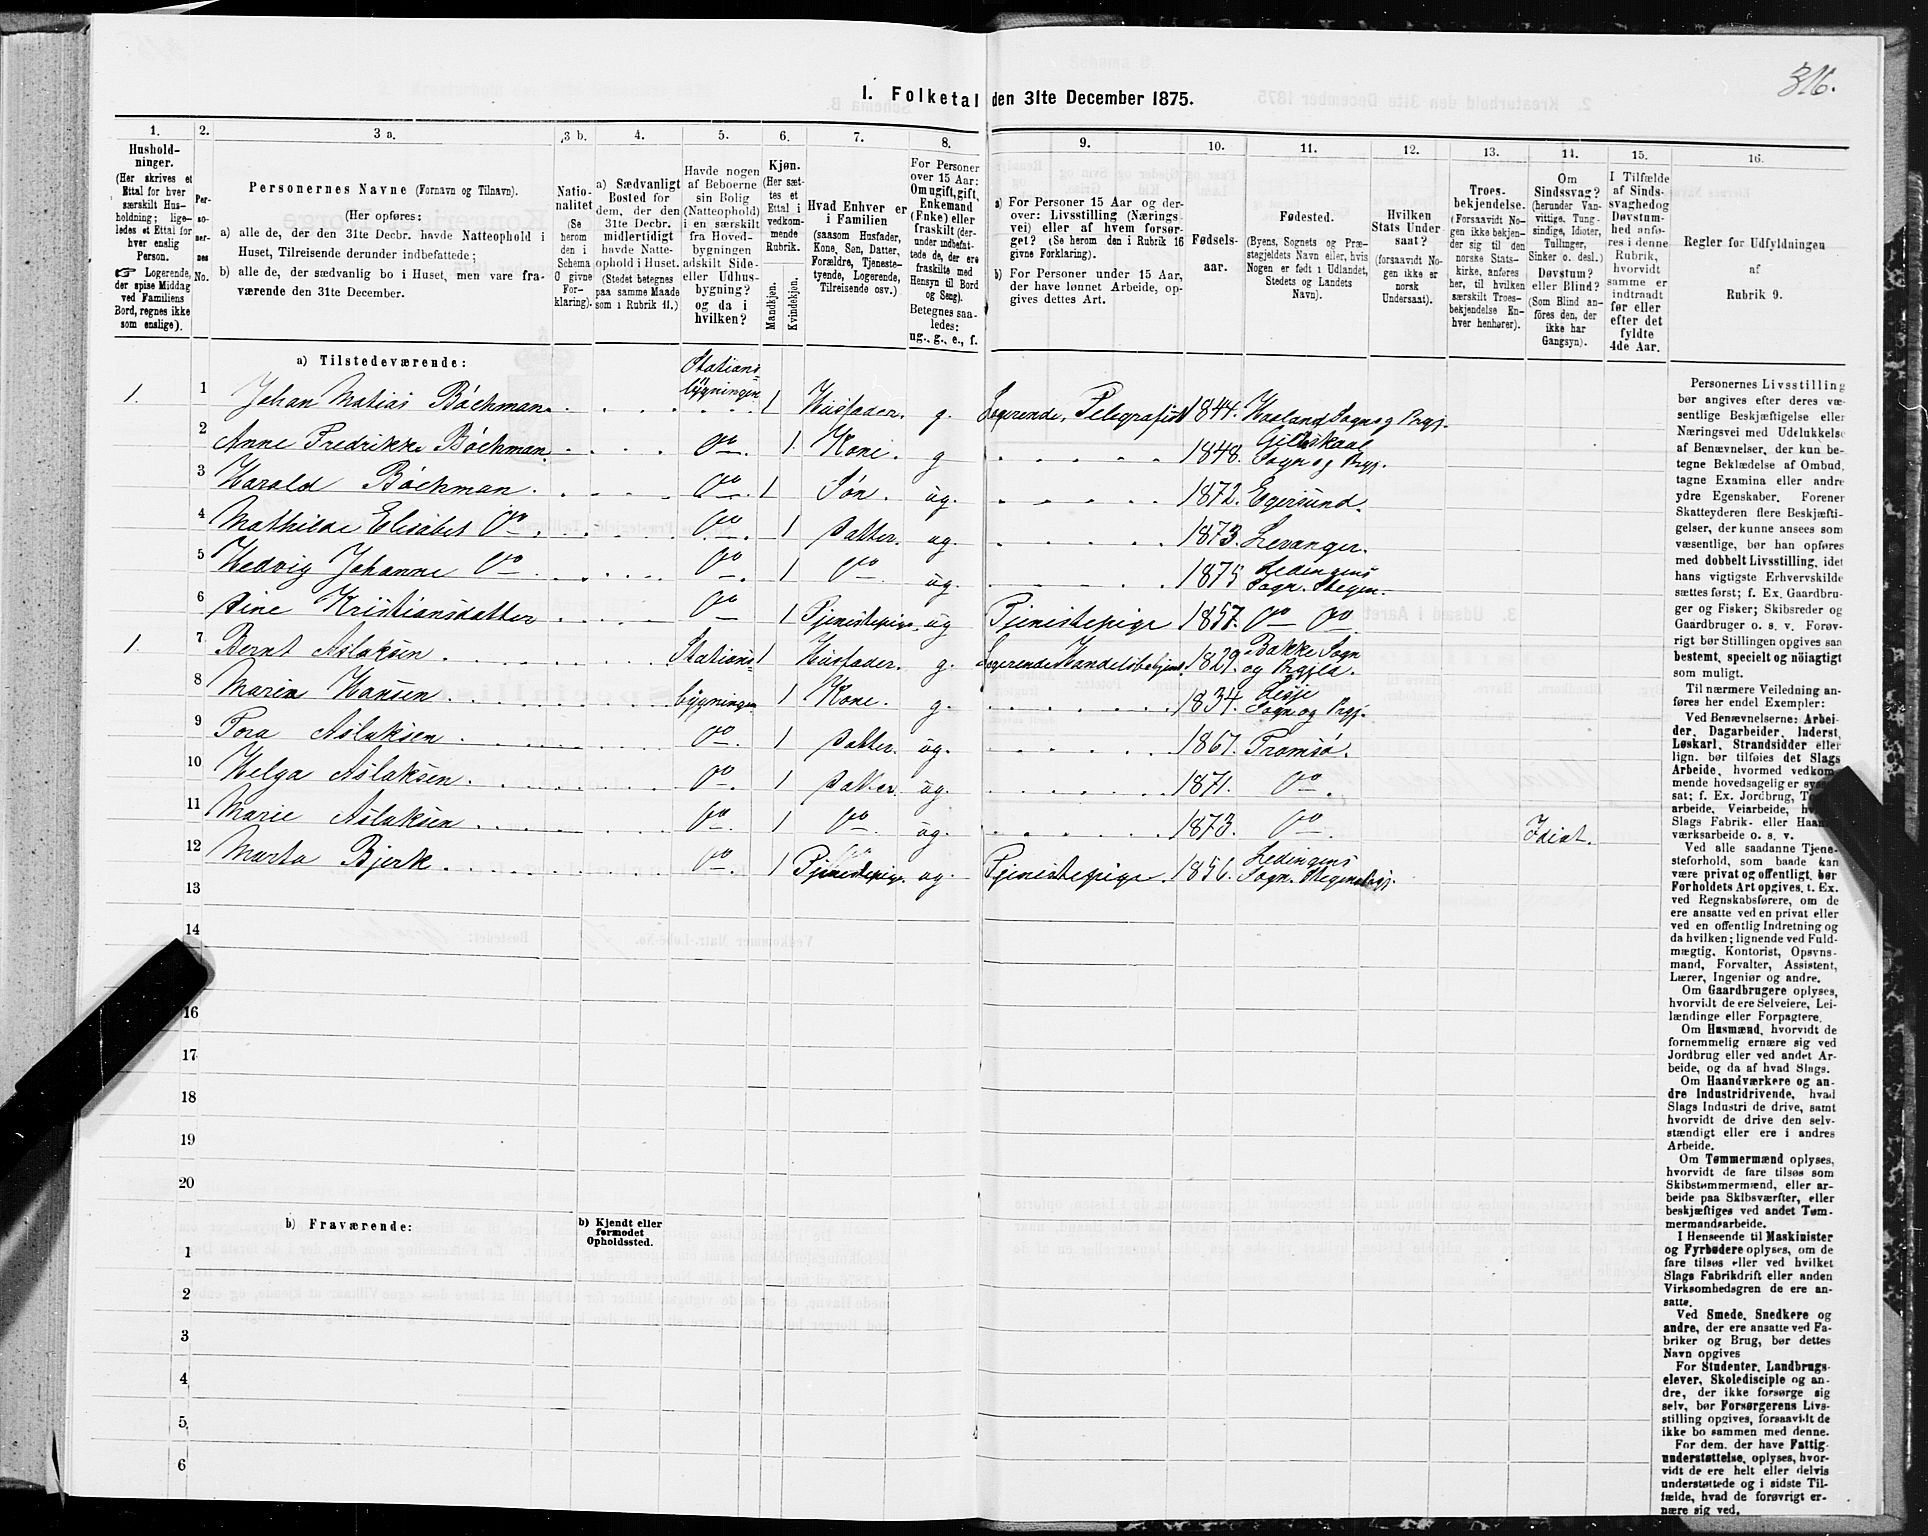 316.
I. Folketal den 31te December 1875.
1. 2. 3 a. 3 b. 4. 5. 6. 7. 8. 9. 10. 11. 12. 13. 14. 15. 16.
Hushold-
ninger.
(Her skrives et
Ettal for hver
særskilt Hus-
holdning; lige-
ledes et Ettal for
hver enslig
Person.
☞ Logerende,
der spise Middag
ved Familiens
Bord, regnes ikke
som enslige).
Per-
so-
ner-
nes
No.
Personernes Navne (Fornavn og Tilnavn).
(Her opføres:
a) alle de, der den 31te Decbr. havde Natteophold i
Huset, Tilreisende derunder indbefattede;
b) alle de, der sædvanlig bo i Huset, men vare fra-
værende den 31te December.
Natio-
nalitet
(Se
herom
den i
Schema
O givne
For-
klaring).
a) Sædvanligt
Bosted for
dem, der den
31te Decbr.
midlertidigt
havde Natte-
ophold i Huset.
(Stedet betegnes
paa samme Maade
som i Rubrik 11.)
Havde nogen
af Beboerne
sin Bolig
(Natteophold)
i en særskilt
fra Hoved-
bygningen
adskilt Side-
eller Udhus-
bygning?
og da i
hvilken?
Kjøn.
(Her sæt-
tes et
Ettal i
vedkom-
mende
Rubrik.
Mandkjøn.
Kvindekjøn.
Hvad Enhver er
i Familien
(saasom Husfader,
Kone, Søn, Datter,
Forældre, Tjeneste-
tyende, Logerende,
Tilreisende osv.)
For Personer
over 15 Aar:
Om ugift, gift,
Enkemand
(Enke) eller
fraskilt (der-
under indbefat-
tede de, der ere
fraskilte med
Hensyn til Bord
og Seng).
Betegnes saa-
ledes:
ug., g., e., f.
a) For Personer 15 Aar og der-
over: Livsstilling (Nærings-
vei) eller af hvem forsør-
get? (Se herom den i Rubrik 16
givne Forklaring).
b) For Personer under 15 Aar,
der have lønnet Arbeide, op-
gives dettes Art.
Fødsels-
aar.
Fødested.
(Byens, Sognets og Præ-
stegjeldets Navn eller, hvis
Nogen er født i Udlandet,
Stedets og Landets
Navn).
Hvilken
Stats Under
saat?
(forsaavidt No-
gen ikke er
norsk
Undersaat).
Troes-
bekjendelse.
(Forsaavidt No-
gen ikke bekjen-
der sig til den
norske Stats-
kirke, anføres
her, til hvilken
særskilt Troes-
bekjendelse En-
hver henhører).
Om
Sindssvag?
(herunder Van-
vittige, Tung-
sindige, Idioter,
Tullinger,
Sinker o. desl.)
Døvstum?
eller Blind?
(Som Blind an-
føres den, der
ikke har
Gangsyn).
I Tilfælde
af Sinds-
svaghed og
Døvstum-
hed anfø-
res i denne
Rubrik,
hvorvidt
samme er
indtraadt
før eller
efter det
fyldte
4de Aar.
Regler for Udfyldningen
af
Rubrik 9.
a) Tilstedeværende:
1. 1 Johan Matias Böchman. Stations- bygningen 1 Husfader. g. Logerende, Telegrafist 1844. Sogn og Prgj.
2 Anne Fredrikke Böchman. do. 1 Kone. g 1848. Gilleskaal Sogn og Prgj.
3 Harald Böchman. do. 1 Søn. ug. 1872. Egersund.
4 Mathilde Elisabet do. do. 1 Datter. ug. 1873. Levanger.
5 Hedvig Johanne do do. 1 do ug. 1875 Ledingens Sogn. Stegen.
6 Sine Kristiansdatter do 1 Tjenestepige. ug Tjenestepige 1857. do do.
1. 7 Bernt Aslaksen. Stations- 1 Husfader. g. Logerende 1829. Bakke Sogn og Prgjld.
8 Maria Hansen. bygningen 1 Kone. g. 1834. Lesje Sogn og Prgj.
9 Tora Aslaksen. do. 1 Datter. ug. 1867. Tromsø.
10 Helga Aslaksen. do. 1 Datter ug. 1871. do.
11 Marie Aslaksen. do. 1 do. ug. 1873. do. Idiot.
12 Marta Bjerk. do. 1 Tjenestepige. ug. Tjenestepige. 1856. Ledingens Sogn. Stegens Prgj.
13
14
16
17
18
19
20
b) Fraværende:
b) Kjendt eller
formodet
Opholdssted.
1
2
3
4
5
6
Personernes Livsstilling
bør angives efter deres væ-
sentlige Beskjæftigelse eller
Næringsvei med Udelukkelse
af Benævnelser, der kun be-
tegne Beklædelse af Ombud,
tagne Examina eller andre
ydre Egenskaber. Forener
Skatteyderen flere Beskjæfti-
gelser, der kunne ansees som
væsentlige, bør han opføres
med dobbelt Livsstilling, idet
hans vigtigste Erhvervskilde
sættes først; f. Ex. Gaardbru-
ger og Fisker; Skibsreder og
Gaardbruger o. s. v. Forøv-
rigt bør Stillingen opgives saa
bestemt, specielt og nøiagtigt
som muligt.
Til nærmere Veiledning an-
føres her endel Exempler:
Ved Benævnelserne: Arbei-
der, Dagarbeider, Inderst,
Løskarl, Strandsidder eller
lign. bør tilføies det Slags
Arbeide, hvormed vedkom-
mende hovedsagelig er
sat; f. Ex. Jordbrug,
arbeide, Veiarbeide,
Slags Fabrik- eller
værksarbeide o. s. v.
Ved alle saadanne Tjene-
steforhold, som baade kan
være privat og offentligt, bør
Forholdets Art opgives, t. Ex.
ved Regnskabsførere, om de
ere ansatte ved en privat eller
ved en offentlig Indretning og
da hvilken; lignende ved Fuld-
mægtig, Kontorist, Opsyns-
mand, Forvalter, Assistent,
Lærer, Ingeniør og andre.
Om Gaardbrugere oplyses,
hvorvidt de ere Selveiere, Lei-
lændinge eller Forpagtere.
Om Husmænd, hvorvidt de
fornemmelig ernære sig ved
Jordbrug eller ved andet Ar-
beide, og da af hvad Slags.
Om Haandværkere og an-
dre Industridrivende, hvad
Slags Industri de drive, samt
hvorvidt de drive den selv-
stændigt eller ere i andres
Arbeide.
Om Tømmermænd oplyses,
hvorvidt de fare tilsøs som
Skibstømmermænd, eller ar-
beide paa Skibsværfter, eller
beskjæftiges ved andet Tøm-
mermandsarbeide.
I Henseende til Maskinister
og Fyrbødere oplyses, om de
fare tilsøs eller ved hvilket
Slags Fabrikdrift eller anden
Virksomhedsgren de ere an-
satte.
Ved Smede, Snedkere og
andre, der ere ansatte ved Fa-
briker og Brug, bør dettes
Navn opgives
For Studenter, Landbrugs-
elever, Skoledisciple og an-
dre, der ikke forsørge sig
selv, bør Forsørgerens Livs-
stilling opgives, forsaavidt de
ikke bo sammen med denne.
For dem, der have Fattig-
understøttelse, oplyses, hvor-
vidt de ere helt eller delvis
understøttede og i sidste Til-
fælde, hvad de forøvrigt er-
nære sig ved.